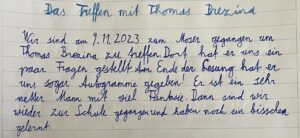 Das Treffen mit Thomas Brezina
Wir sind am 9.11.2023 zum Moser gegangen um
Thomas Brezina zu treffen. Dort hat er uns ein
paar Fragen gestellt. Am Ende der Lesung hat er
uns sogar Autogramme gegeben! Er ist ein sehr
netter Mann mit viel Fantasie. Dann sind wir
wieder zur Schule gegangen und haben noch ein bisschen
gelernt.